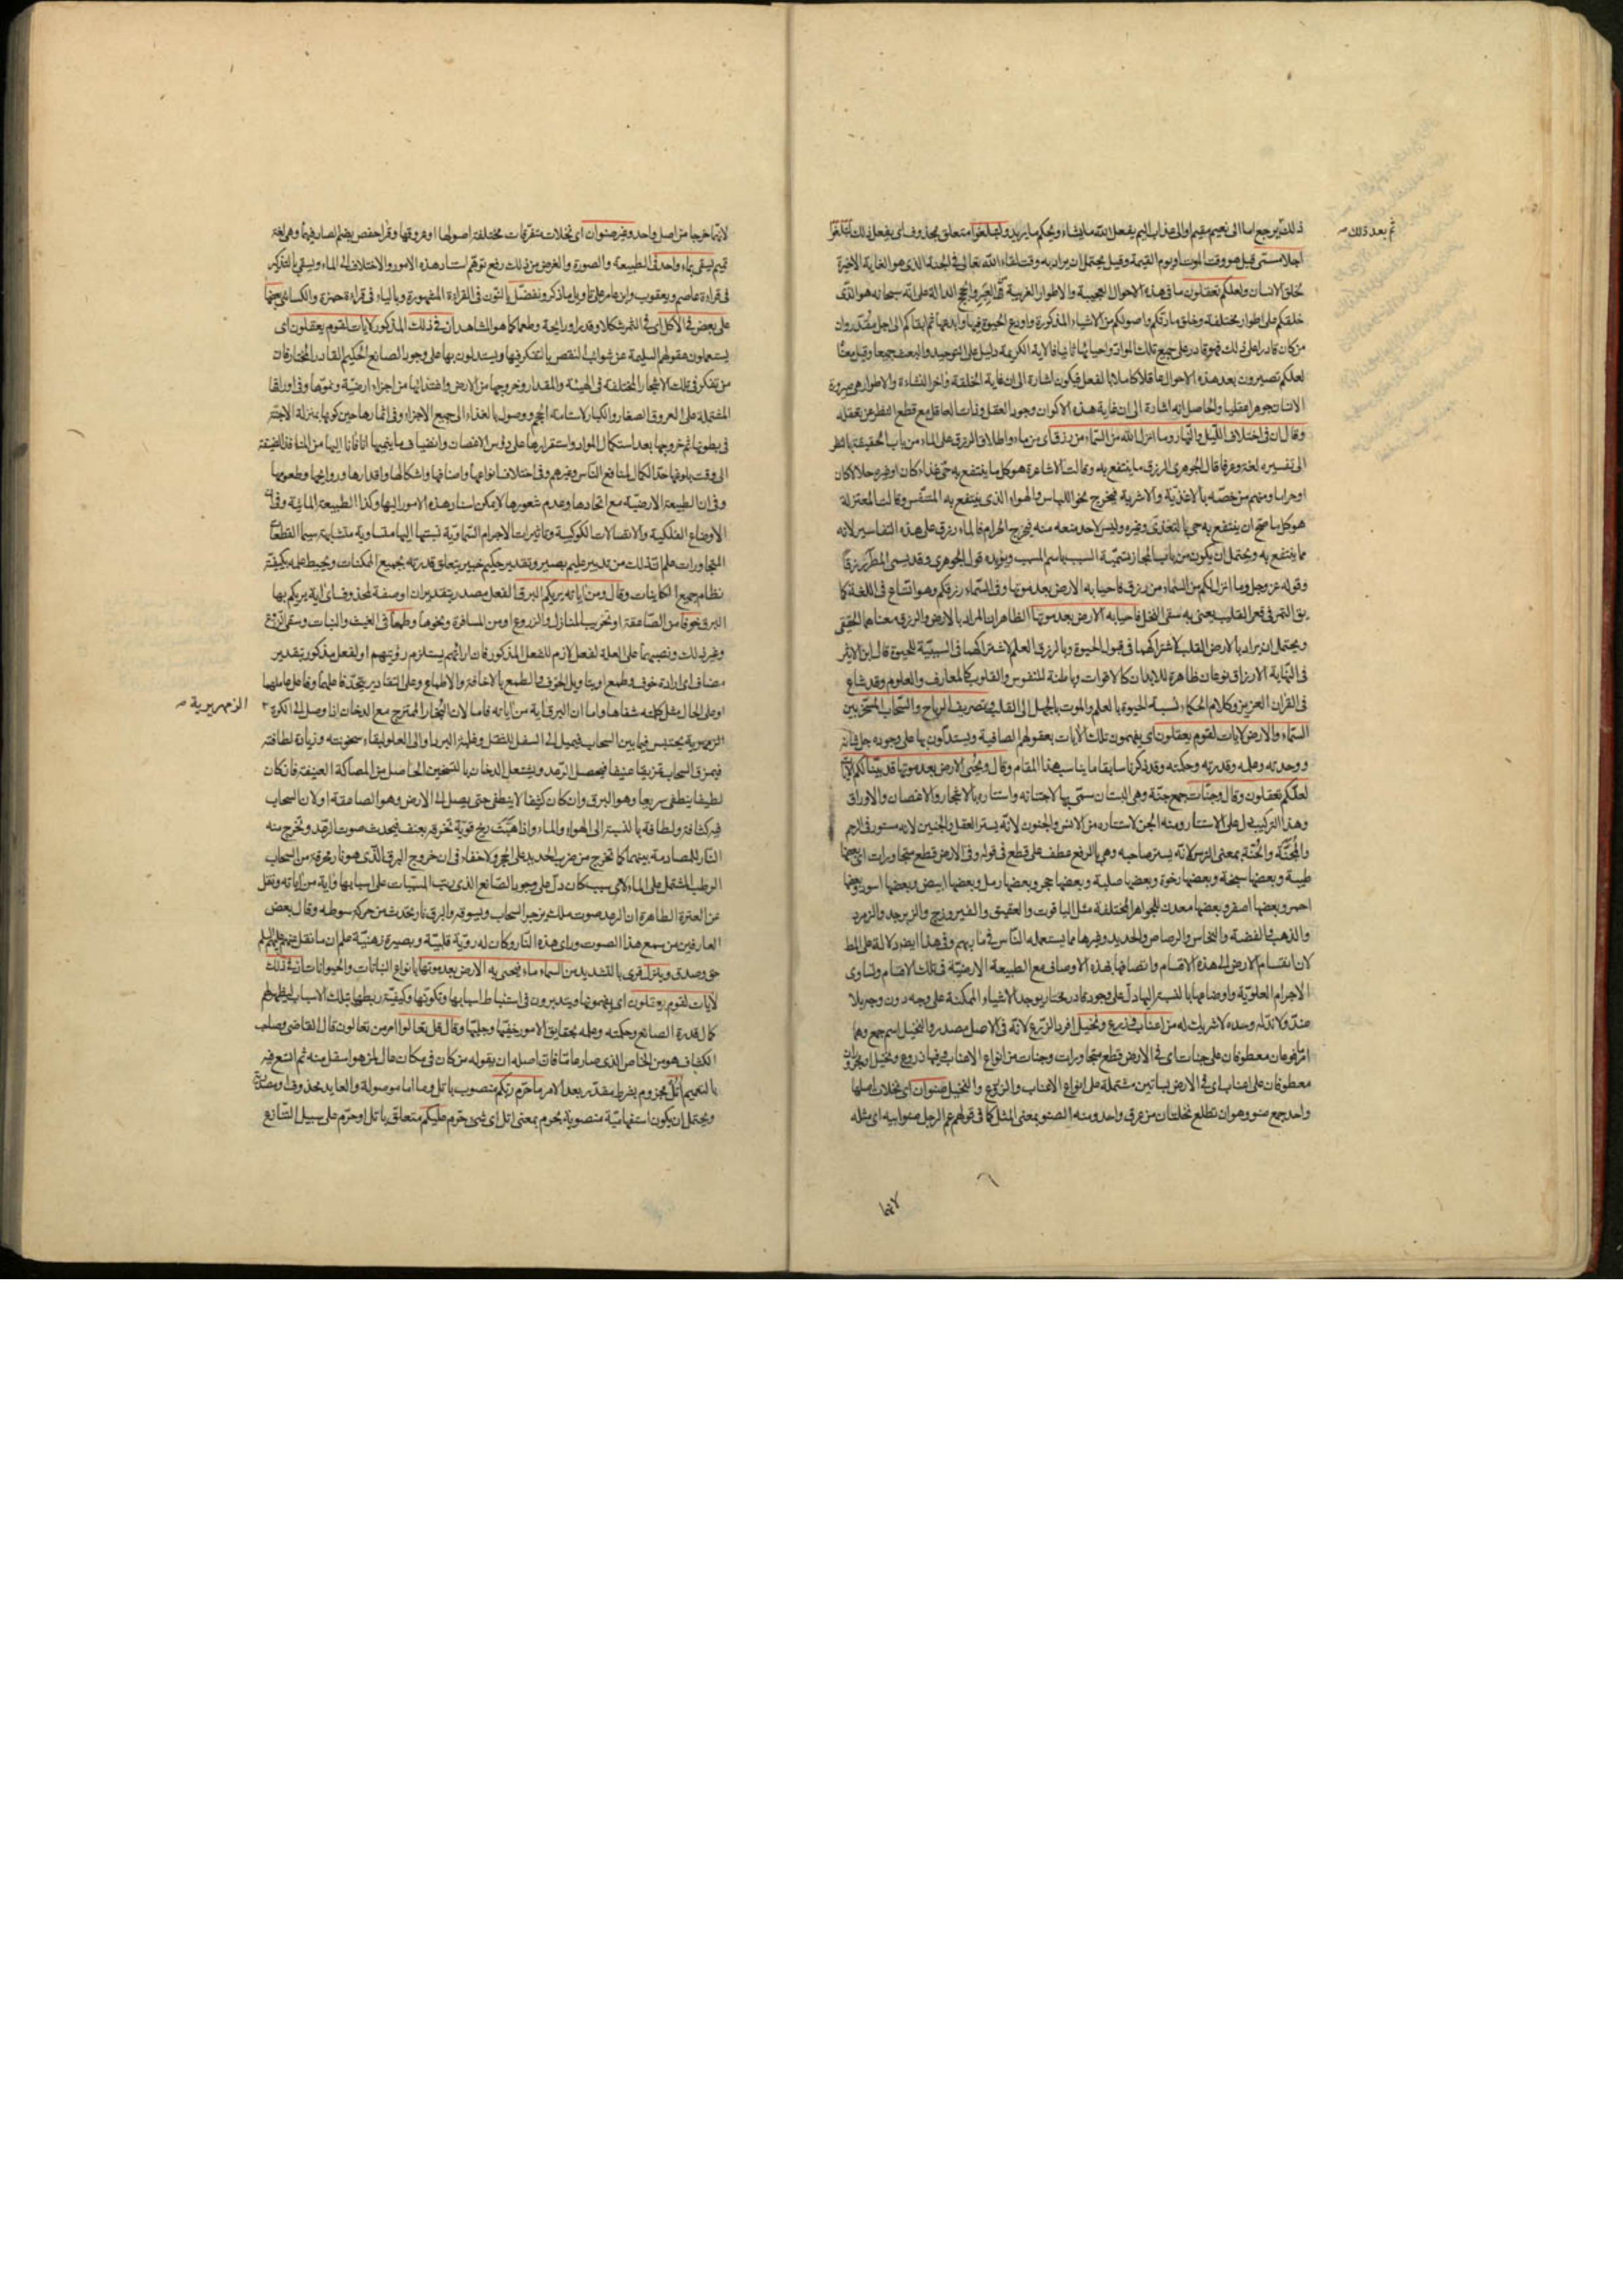 ثم بعد ذلك
ذلك يرجع اما الى نعيم مقيم او الى عذاب اليم يفعل الله ما يشاء ويحكم ما يريد ولتبلغوا متعلق بمحذوف اى يفعل ذلك لتبلغوا
اجلا مسمى قيل هو وقت الموت او يوم القيمة وقيل يحتمل ان يراد به وقت لقاء الله تعالى فى الجنة الذى هو الغاية الاخيرة
لخلق الانسان ولعلكم تعقلون ما فى هذه الاحوال العجيبة والاطوار الغريبة من العبر والحجج الدالة على انه سبحانه هو الذى
خلقكم على اطوار مختلفة وخلق مادتكم واصولكم من الاشياء المذكورة واودع الحيوة فيها وابدعها ثم ابقاكم الى اجل مقدر وان
من كان قادرا على ذلك فهو قادر على جميع تلك المواد واحيائها ثانيا فالاية الكريمة دليل على التوحيد والبعث جميعا وقيل معنا
لعلكم تصيرون بعد هذه الاحوال عاقلا كاملا بالفعل فيكون اشارة الى ان غاية الخلقة واخر النشاءة والاطوار هى صيرورة
الانسان جوهرا عقليا والحاصل انه اشارة الى ان غاية هذه الاكوان وجود العقل وذات العاقل مع قطع النظر عن تعقله
وقال ان فى اختلاف الليل والنهار وما انزل الله من السماء من رزق اى من ماء واطلاق الرزق على الماء من باب الحقيقة بالنظر
الى تفسيره لغة وعرفا قال الجوهرى الرزق ما ينتفع به وقالت الاشاعرة هو كل ما ينتفع به حى غذاء كان او غيره حلالا كان
او حراما ومنهم من خصه بالاغذية والاشربة فيخرج نحو اللباس والهواء الذى ينتفع به المتنفس وقالت المعتزلة
هو كل ما صح ان ينتفع به حى بالتغذى وغيره وليس لاحد منعه منه فيخرج الحرام فالماء رزق على هذه التفاسير لانه
مما ينتفع به ويحتمل ان يكون من باب المجاز تسمية السبب باسم المسبب ويؤيده قول الجوهرى وقد يسمى المطر رزقا
وقوله عز وجل وما انزل لكم من السماء من رزق فاحيا به الارض بعد موتها وفى السماء رزقكم وهو اتساع فى اللغة كما
يق التمر فى قعر القليب يعنى به سقى النخل فاحيا به الارض بعد موتها الظاهر ان المراد بالارض والرزق معناهما الحقيقى
ويحتمل ان يراد بالارض القلب لاشتراكهما فى قبول الحيوة وبالرزق العلم لاشتراكهما فى السببية للحيوة قال ابن الاثير
فى النهاية الارزاق نوعان ظاهرة للابدان كالاقوات وباطنة للنفوس والقلوب كالمعارف والعلوم وقد شاع
فى القران العزيز وكلام الحكماء نسبة الحيوة بالعلم والموت بالجهل الى القلب وتصريف الرياح والسحاب المسخر بين
السماء والارض لايات لقوم يعقلون اى يفهمون تلك الايات بعقولهم الصافية ويستدلون بها على وجوده جل شانه
ووحدته وعلمه وقدرته وحكمته وقد ذكرنا سابقا ما يناسب هذا المقام وقال ويحيى الارض بعد موتها قد بينا لكم الايات
لعلكم تعقلون وقال وجنات جمع جنة وهى البستان سمى بها لاجتنانه واستتاره بالاشجار والاغصان والاوراق
وهذا التركيب يدل على الاستتار ومنه الجن لاستتاره من الانس والجنون لانه يستر العقل والجنين لانه مستور فى الرحم
والمجنة والجنة بمعنى الترس لانه يستر صاحبه وهى بالرفع عطف على قطع فى قوله وفى الارض قطع متجاورات اى بعضها
طيبة وبعضها سبخة وبعضها رخوة وبعضها صلبة وبعضها حجر وبعضها رمل وبعضها ابيض وبعضها اسود وبعضها
احمر وبعضها اصفر وبعضها معدن للجواهر المختلفة مثل الياقوت والعقيق والفيروزج والزبرجد والزمرد
والذهب والفضة والنحاس والرصاص والحديد وغيرها مما يستعمله الناس فى مابهم وفى هذا ايضا دلالة على المط
لان انقسام الارض الى هذه الاقسام واتصافها بهذه الاوصاف مع الطبيعة الارضية فى تلك الاقسام وتساوى
الاجرام العلوية واوضاعها بالنسبة اليها دل على وجود قادر مختار يوجد الاشياء الممكنة على وجه دون وجه بلا
ضد ولا ند له وحده لا شريك له من اعناب وزرع ونخيل افرد الزرع لانه فى الاصل مصدر والنخيل اسم جمع وهما
امرفوعان معطوفان على جنات اى فى الارض قطع متجاورات وجنات من انواع الاعناب وفيها زروع ونخيل او مجروران
معطوفان على اعناب اى فى الارض بساتين مشتملة على انواع الاعناب والزروع والنخيل صنوان اى نخلات اصلها
واحد جمع صنو وهو ان تطلع نخلتان من عرق واحد ومنه الصنو بمعنى المثل كما فى قولهم عم الرجل صنو ابيه اى مثله
لانهما
لانهما خرجا من اصل واحد وغير صنوان اى نخلات متفرقات مختلفة اصولها او عروقها وقرا حفص بضم الصاد فيهما وهى لغة
تميم يسقى بماء واحد فى الطبيعة والصورة والغرض من ذلك رفع توهم استناد هذه الامور والاختلاف الى الماء ويسقى بالتذكير
فى قراءة عاصم ويعقوب وابن عامر على تاويل ما ذكر ونفضل بالنون فى القراءة المشهورة وبالياء فى قراءة حمزة والكسائى بعضها
على بعض فى الاكل اى فى الثمر شكلا وقدرا ورايحة وطعما كما هو المشاهد ان فى ذلك المذكور لايات لقوم يعقلون اى
يستعملون عقولهم السليمة عن شوائب النقص بالتفكر فيها ويستدلون بها على وجود الصانع الحكيم القادر المختار فان
من تفكر فى تلك الاشجار المختلفة فى الهيئة والمقدار وخروجها من الارض واغتذائها من اجزاء ارضية ونموها وفى اوراقها
المشتملة على العروق الصغار والكبار لاستقامة الحجم ووصول الغذاء الى جميع الاجزاء وفى اثمارها حين كونها بمنزلة الاجنة
فى بطونها ثم خروجها بعد استكمال المواد واستقرارها على رؤس الاغصان وانضياف ما ينميها انا فانا اليها من المنافذ الضيقة
الى وقت بلوغها حد الكمال لمنافع الناس وغيرهم وفى اختلاف انواعها واصنافها واشكالها واقدارها وروايحها وطعومها
وفى ان الطبيعة الارضية مع اتحادها وعدم شعورها لا يمكن اسناد هذه الامور اليها وكذا الطبيعة المائية وفى ان
الاوضاع الفلكية والاتصالات الكوكبية وتاثيرات الاجرام السماوية نسبتها اليها متساوية متشابهة سيما القطعات
المتجاورات علم ان ذلك من تدبير عليم بصير وتقدير حكيم خبير يتعلق قدرته بجميع الممكنات ويحيط علمه بكيفية
نظام جميع الكاينات وقال ومن اياته يريكم البرق الفعل مصدر بتقدير ان او صفة لمحذوف اى اية يريكم بها
البرق خوفا من الصاعقة او تخريب المنازل والزروع او من المسافرة ونحوها وطمعا فى الغيث والنبات وسقى الزروع
وغير ذلك ونصبهما على العلة لفعل لازم للفعل المذكور فان اراءتهم يستلزم رؤيتهم او لفعل مذكور بتقدير
مضاف اى ارادة خوف وطمع او بتاويل الخوف والطمع بالاخافة والاطماع وعلى التقادير يتحد فاعلهما وفاعل عاملهما
او على الحال مثل كلمته شفاها واما ان البرق اية من اياته فاما لان البخار الممتزج مع الدخان اذا وصل الى الكرة
الزمهريرية
الزمهريرية يحتبس فيما بين السحاب فيميل الى السفل للثقل وغلبة البرد او الى العلو لبقاء سخونته وزيادة لطافته
فيمزق السحاب تمزيقا عنيفا فيحصل الرعد ويشتعل الدخان بالتسخين الحاصل من المصاكة العنيفة فان كان
لطيفا ينطفى سريعا وهو البرق وان كان كثيفا لا ينطفى حتى يصل الى الارض وهو الصاعقة او لان السحاب
فيه كثافة ولطافة بالنسبة الى الهواء والماء واذا هبت ريح قوية تخرقه بعنف فيحدث صوت الرعد وتخرج منه
النار للمصادمة بينهما كما تخرج من ضرب الحديد على الحجر ولا خفاء فى ان خروج البرق الذى هو نار محرقة من السحاب
الرطب المشتمل على الماء لاى سبب كان دل على وجود الصانع الذى رتب المسببات على اسبابها واية من اياته ونقل
عن العترة الطاهرة ان الرعد صوت ملك يزجر السحاب ويسوقه والبرق نار يحدث من حركة سوطه وقال بعض
العارفين من سمع هذا الصوت وراى هذه النار وكان له رؤية قلبية وبصيرة ذهنية علم ان ما نقل عنهم عليهم السلم
حق وصدق وينزل قرى بالتشديد من السماء ماء فيحيى به الارض بعد موتها بانواع النباتات والحيوانات ان فى ذلك
لايات لقوم يعقلون اى يفهمونها ويتدبرون فى استنباط اسبابها وتكونها وكيفية ربطها بتلك الاسباب ليظهر لهم
كمال قدرة الصانع وحكمته وعلمه بحقايق الامور خفيها وجليها وقال قل تعالوا امر من تعالون قال القاضى وصاحب
الكشاف هو من الخاص الذى صار عاما فان اصله ان يقوله من كان فى مكان عال لمن هو اسفل منه ثم اتسع فيه
بالتعميم اتل مجزوم بشرط مقدر بعد الامر ما حرم ربكم منصوب باتل وما اما موصولة والعايد محذوف او مصدرية
ويحتمل ان يكون استفهامية منصوبة بحرم بمعنى اتل اى شئ حرم عليكم متعلق باتل او حرم على سبيل التنازع